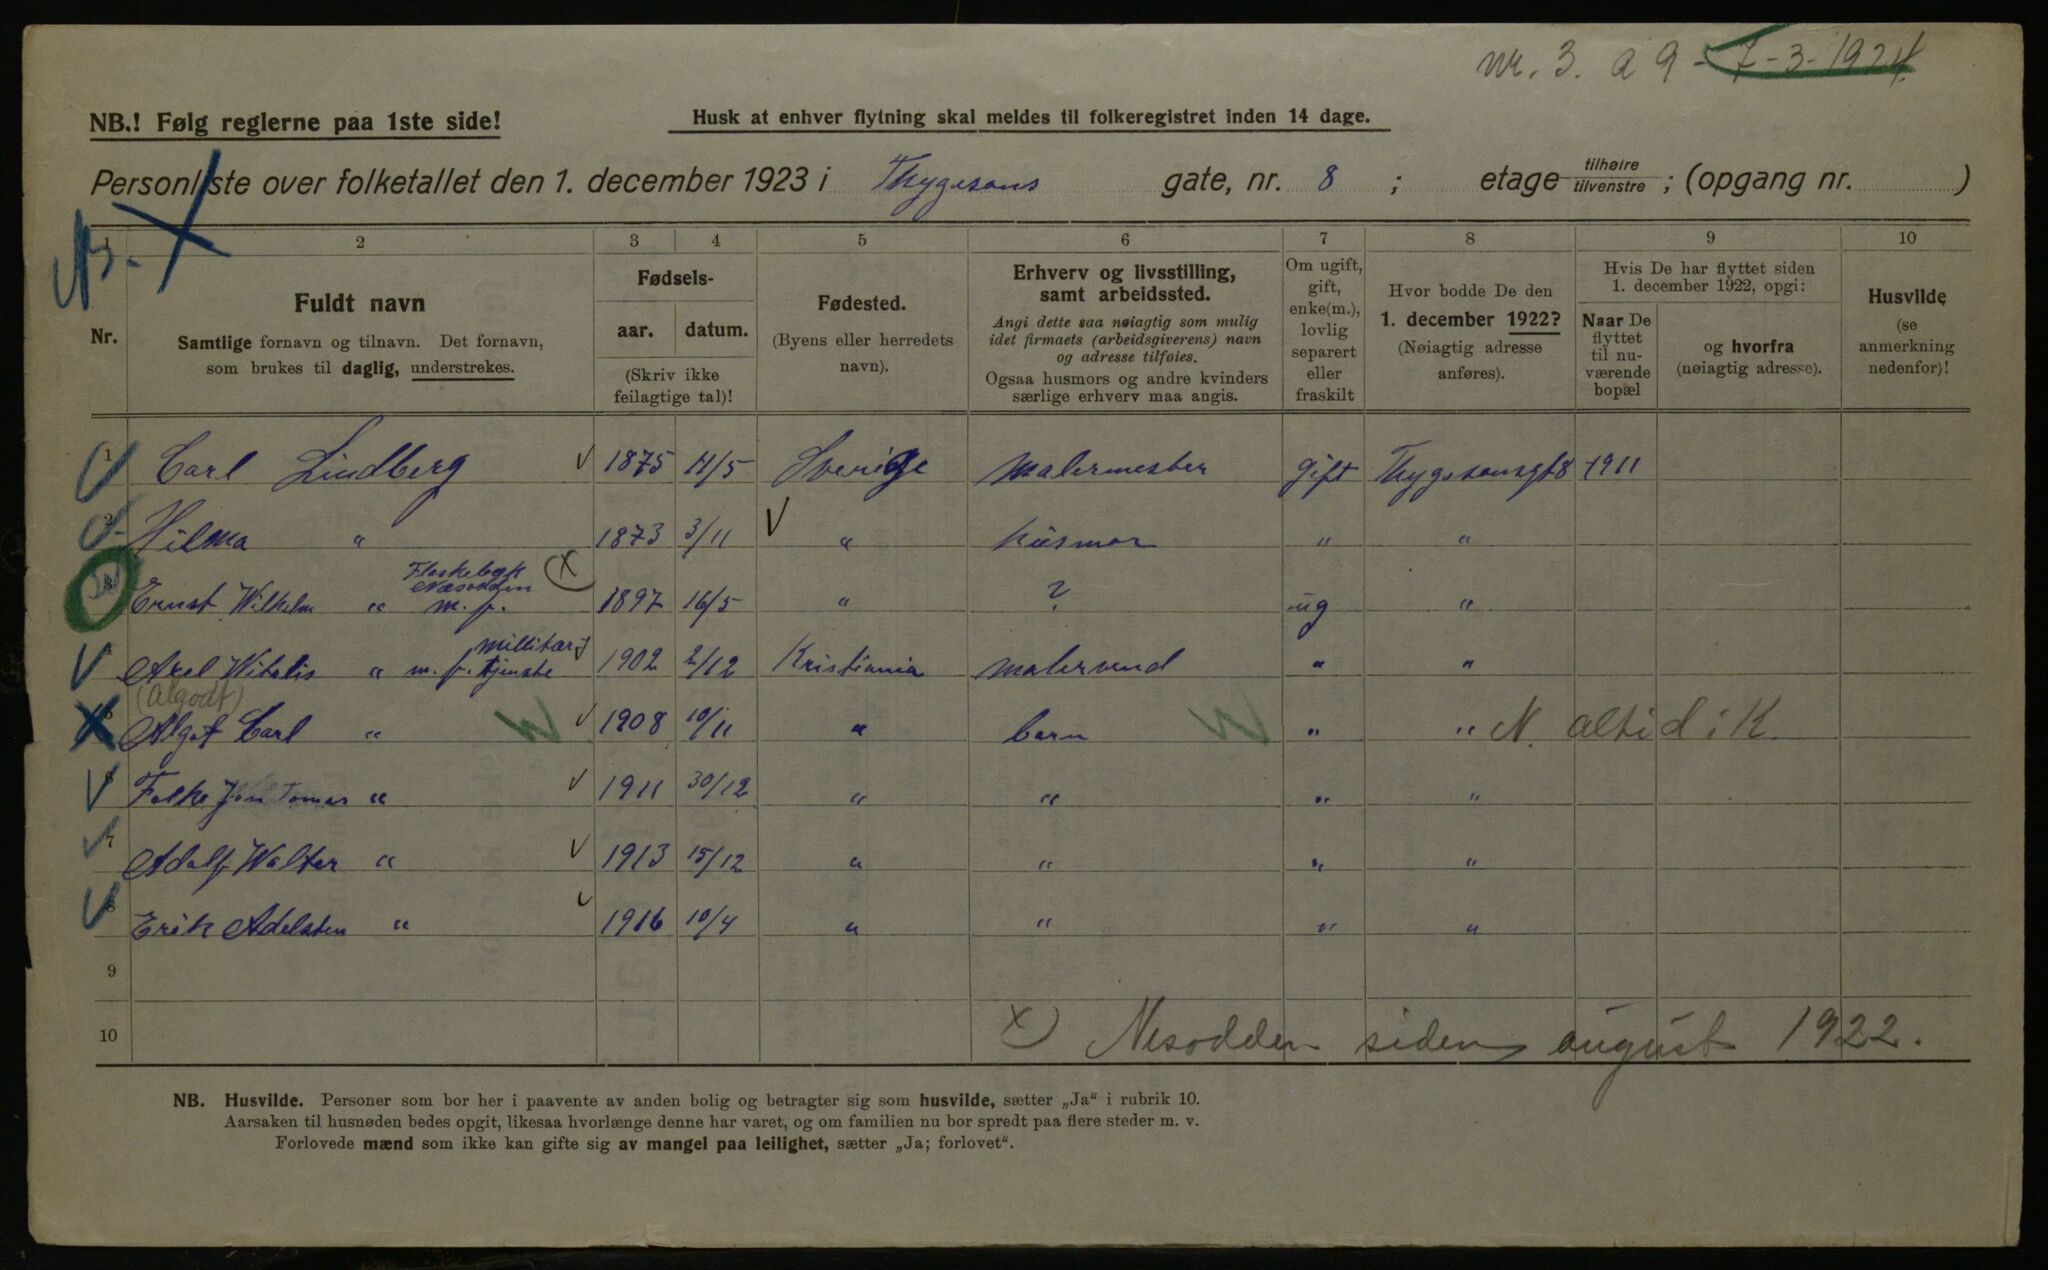 Nr. 3. a 9 - 7-3-1924.
NB.! Følg reglerne paa 1ste side!
Husk at enhver flytning skal meldes til folkeregistret inden 14 dage.
Personliste over folketallet den 1. december 1923 i Thygesons gate, nr. 8 ; etage tilhøire/tilvenstre ; (opgang nr. )
1 2 3 4 5 6 7 8 9 10
Nr.
Fuldt navn
Samtlige fornavn og tilnavn. Det fornavn,
som brukes til daglig, understrekes.
Fødsels-
aar. datum.
(Skriv ikke
feilagtige tal)!
Fødested.
(Byens eller herredets
navn).
Erhverv og livsstilling,
samt arbeidssted.
Angi dette saa nøiagtig som mulig
idet firmaets (arbeidsgiverens) navn
og adresse tilføies.
Ogsaa husmors og andre kvinders
særlige erhverv maa angis.
Om ugift,
gift,
enke(m.),
lovlig
separert
eller
fraskilt
Hvor bodde De den
1. december 1922?
(Nøiagtig adresse
anføres).
Hvis De har flyttet siden
1. december 1922, opgi:
Naar De
flyttet
til nu-
værende
bopæl
og hvorfra
(nøiagtig adresse).
Husvilde
(se
anmerkning
nedenfor)!
1 Carl Lindberg 1875 14/5 Sverige Malermester gift Thygesonsgt 8 1911
2 Hilma " 1873 3/11 " husmor " "
Flaskebek
Næsodden
3 Ernst Wilhelm " m. p. x 1897 16/5 " ? ug "
millitær
4 Axel Witalis " m. p. tjenste 1902 2/12 Kristiania malersvend " "
(Algodt)
5 Algot Carl " 1908 10/11 " barn " " N. altid i K.
6 Folke Jon Tomas " 1911 30/12 " " " "
7 Adolf Walter " 1913 15/12 " " " "
8 Erik Adelsten " 1916 10/4 " " " "
9
10 x) Nesodden siden august 1922.
NB. Husvilde. Personer som bor her i paavente av anden bolig og betragter sig som husvilde, sætter „Ja“ i rubrik 10.
Aarsaken til husnøden bedes opgit, likesaa hvorlænge denne har varet, og om familien nu bor spredt paa flere steder m. v.
Forlovede mænd som ikke kan gifte sig av mangel paa leilighet, sætter „Ja; forlovet“.